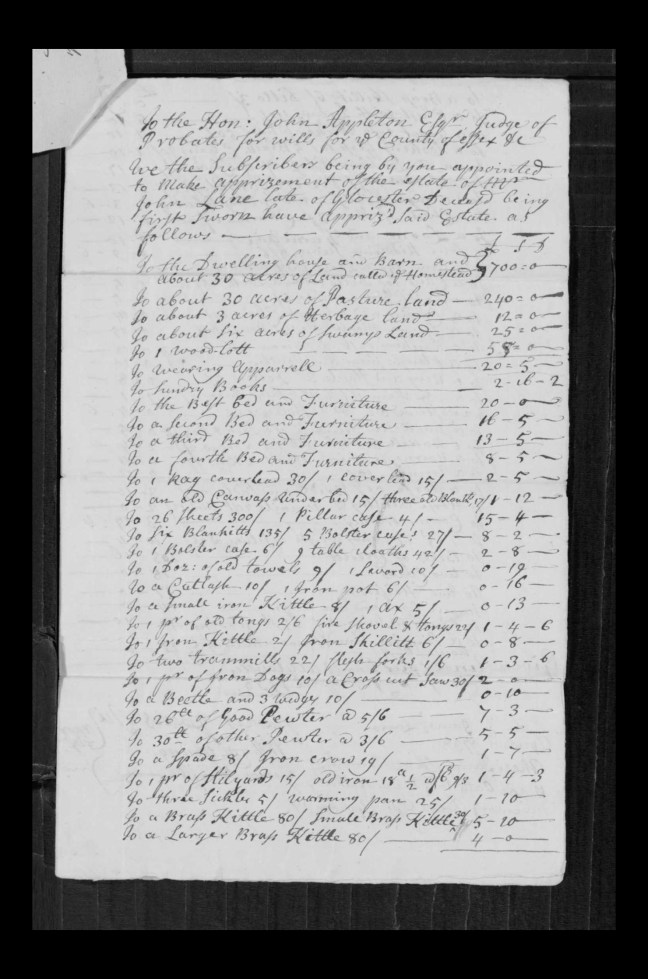 To the Hon: John Appleton Esqr Judge of
Probates for wills for ye County of Essex &c
We the Subscribers being by you appointed
to Make apprizement of the estate of Mr
John Lane late of Glocester Deceasd being
first Sworn have apprizd Said Estate as
follows — £ S D
To the Dwelling house and Barn and
about 30 acres of Land called ye Homestead } 700=0—
To about 30 acres of Pasture land — 240=0—
To about 3 acres of Herbage land — 12=0—
To about Six acres of Swamp Land — 25=0—
To 1 wood-lott — 55=0—
To wearing Apparrell — 20=5—
To Sundry Books — 2-16-2
To the Best bed and Furniture — 20-0—
To a Second Bed and Furniture — 16-5—
To a third Bed and Furniture — 13-5—
To a fourth Bed and Furniture — 8-5—
To 1 Rag coverlead 30/ 1 coverlead 15/— 2-5—
To an old Canvass Underbed 15/ three old Blankts 17/ 1-12—
To 26 Sheets 300/ 1 Pillar case 4/— 15-4—
To Six Blankitts 135/ 5 Bolster cases 27/— 8-2—
To 1 Bolster case 6/ 9 table cloaths 42/— 2-8—
To 1 Doz: of old towels 9/ 1 Sword 10/— 0-19—
To a Cutlash 10/ 1 Iron pot 6/— 0-16—
To a Small iron Kittle 8/ 1 ax 5/— 0-13—
To 1 pr of old tongs 2/6 fire Shovel & tongs 22/ 1-4-6
To 1 Iron Kittle 2/ Iron Skillitt 6/— 0-8—
To two trammills 22/ flesh forks 1/6 1-3-6
To 1 pr of Iron Dogs 10/ a Cross cut Saw 30/ 2-0—
To a Beetle and 3 wedges 10/ — 0-10—
To 26lb of good Pewter @ 5/6 — 7-3—
To 30lb of other Pewter @ 3/6 — 5-5—
To a Spade 8/ Iron crow 19/ — 1-7—
To 1 pr of Stilyards 15/ old iron 18 1/2 @ 9/3 1-4-3
To three Sickles 5/ warming pan 25/ 1-10—
To a Brass Kittle 80/ Small Brass Kittle 30/ 5-10—
To a Larger Brass Kittle 80/ — 4-0—